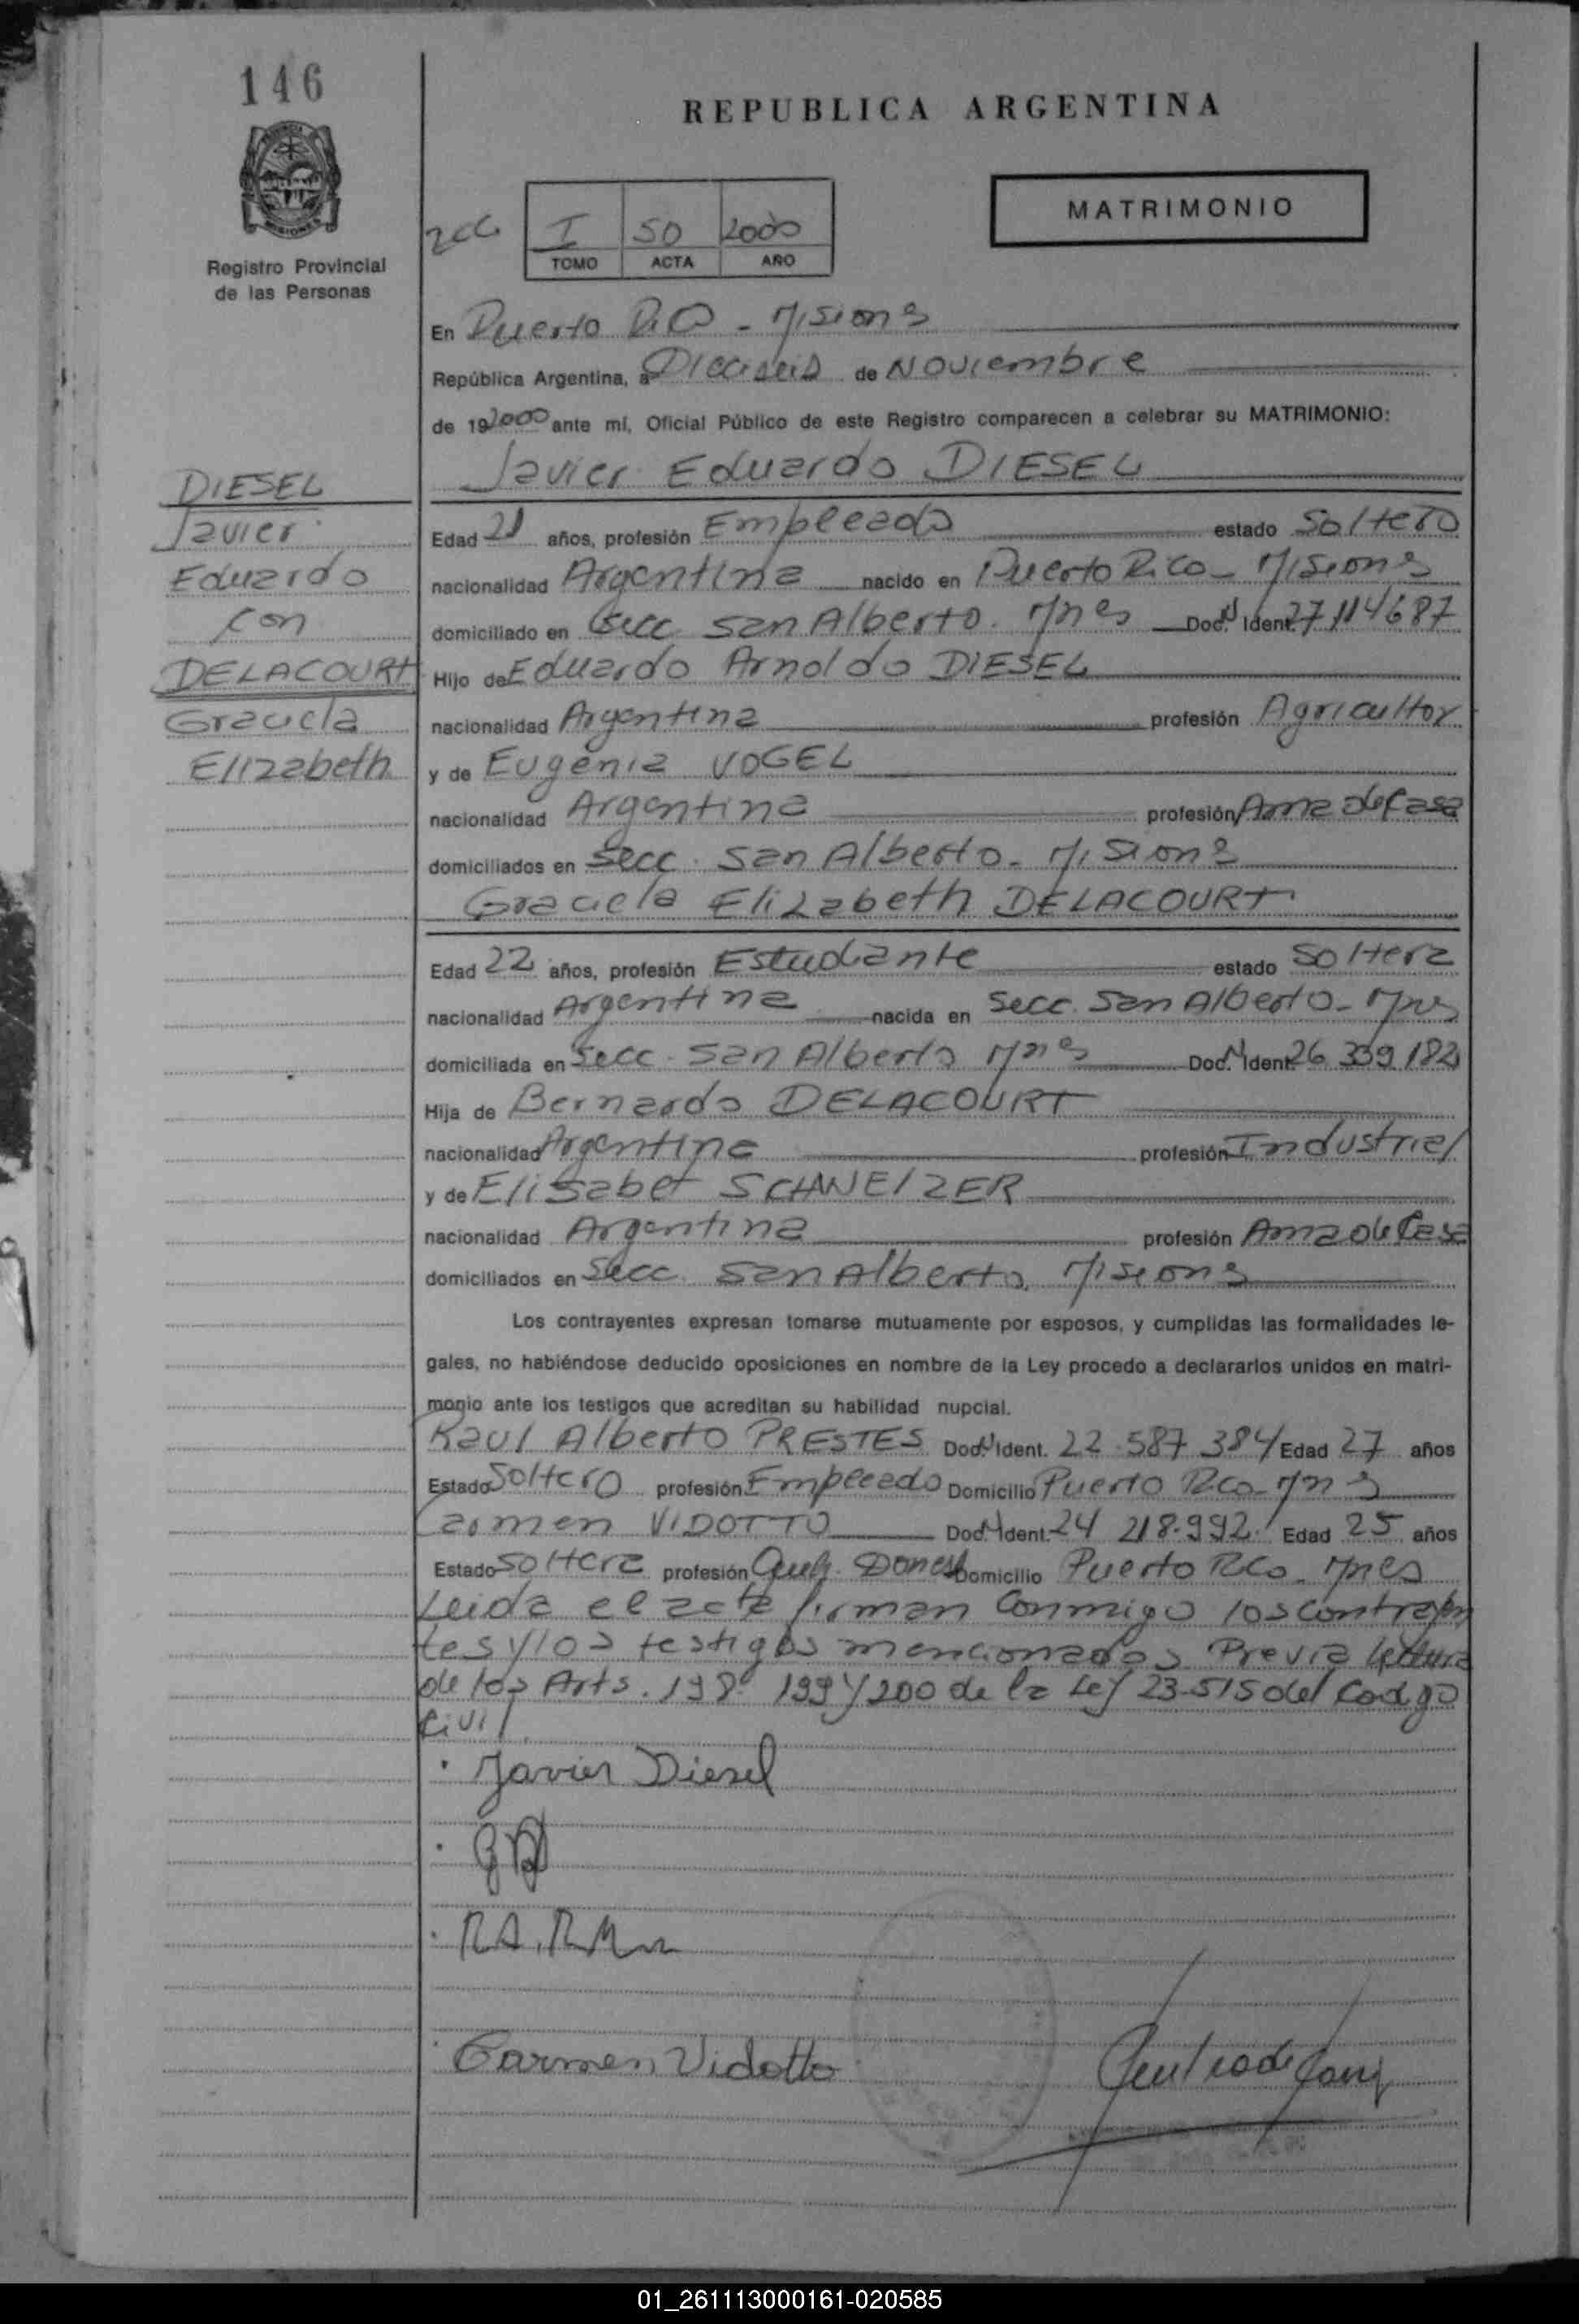 146
REPUBLICA ARGENTINA
MATRIMONIO
I 50 2000
TOMO ACTA AÑO
Registro Provincial
de las Personas
En Puerto Rico - Misiones
República Argentina, a Dieciseis de Noviembre
de 192000 ante mí, Oficial Público de este Registro comparecen a celebrar su MATRIMONIO:
Javier Eduardo DIESEL
DIESEL
Javier
Eduardo
con
DELACOURT
Graciela
Elizabeth
Edad 21 años, profesión Empleado estado Soltero
nacionalidad Argentina nacido en Puerto Rico - Misiones
domiciliado en Secc San Alberto. Mnes Doc. N Ident. 27 114687
Hijo de Eduardo Arnoldo DIESEL
nacionalidad Argentina profesión Agricultor
y de Eugenia VOGEL
nacionalidad Argentina profesión Ama de Casa
domiciliados en Secc. San Alberto - Misiones
Graciela Elizabeth DELACOURT
Edad 22 años, profesión Estudiante estado Soltera
nacionalidad Argentina nacida en Secc. San Alberto - Mnes
domiciliada en Secc. San Alberto Mnes Doc. N Ident. 26 339 182
Hija de Bernardo DELACOURT
nacionalidad Argentina profesión Industrial
y de Elisabet SCHWEIZER
nacionalidad Argentina profesión Ama de Casa
domiciliados en Secc. San Alberto, Misiones
Los contrayentes expresan tomarse mutuamente por esposos, y cumplidas las formalidades le-
gales, no habiéndose deducido oposiciones en nombre de la Ley procedo a declararlos unidos en matri-
monio ante los testigos que acreditan su habilidad nupcial.
Raul Alberto PRESTES Doc. N Ident. 22.587 384 Edad 27 años
Estado Soltero profesión Empleado Domicilio Puerto Rico - Mnes
Carmen VIDOTTO Doc. N Ident. 24 218.992 Edad 25 años
Estado Soltera profesión Domicilio Puerto Rico - Mnes
Leida el acta firman conmigo los contrayen
tes y los testigos mencionados Previa lectura
de los Arts. 198 199 y 200 de la Ley 23.515 del Codigo
Civil
Javier Diesel
Carmen Vidotto
01_261113000161-020585